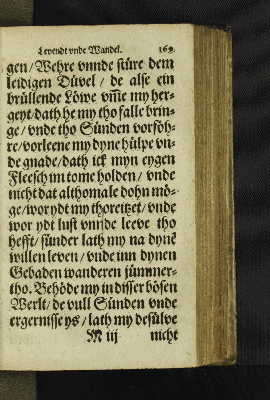 Levendt vnde Wandel. 169.
gen / Wehre vnnde stüre dem
leidigen Düvel / de alse ein
brüllende Löwe vm̃e my her-
geyt / dath he my tho falle brin-
ge / vnde tho Sünden vorföh-
re / vorleene my dyne hülpe vn-
de gnade / dath ick myn eygen
Fleesch im tome holden / vnde
nicht dat althomale dohn mö-
ge / wor ydt my thoreitzet / vnde
wor ydt lust vnnde leeve tho
hefft / sünder lath my na dynẽ
willen leven / vnde inn dynen
Gebaden wanderen jümmer-
tho. Behöde my in disser bösen
Werlt / de vull Sünden vnde
ergernisse ys / lath my desülve
M iij nicht